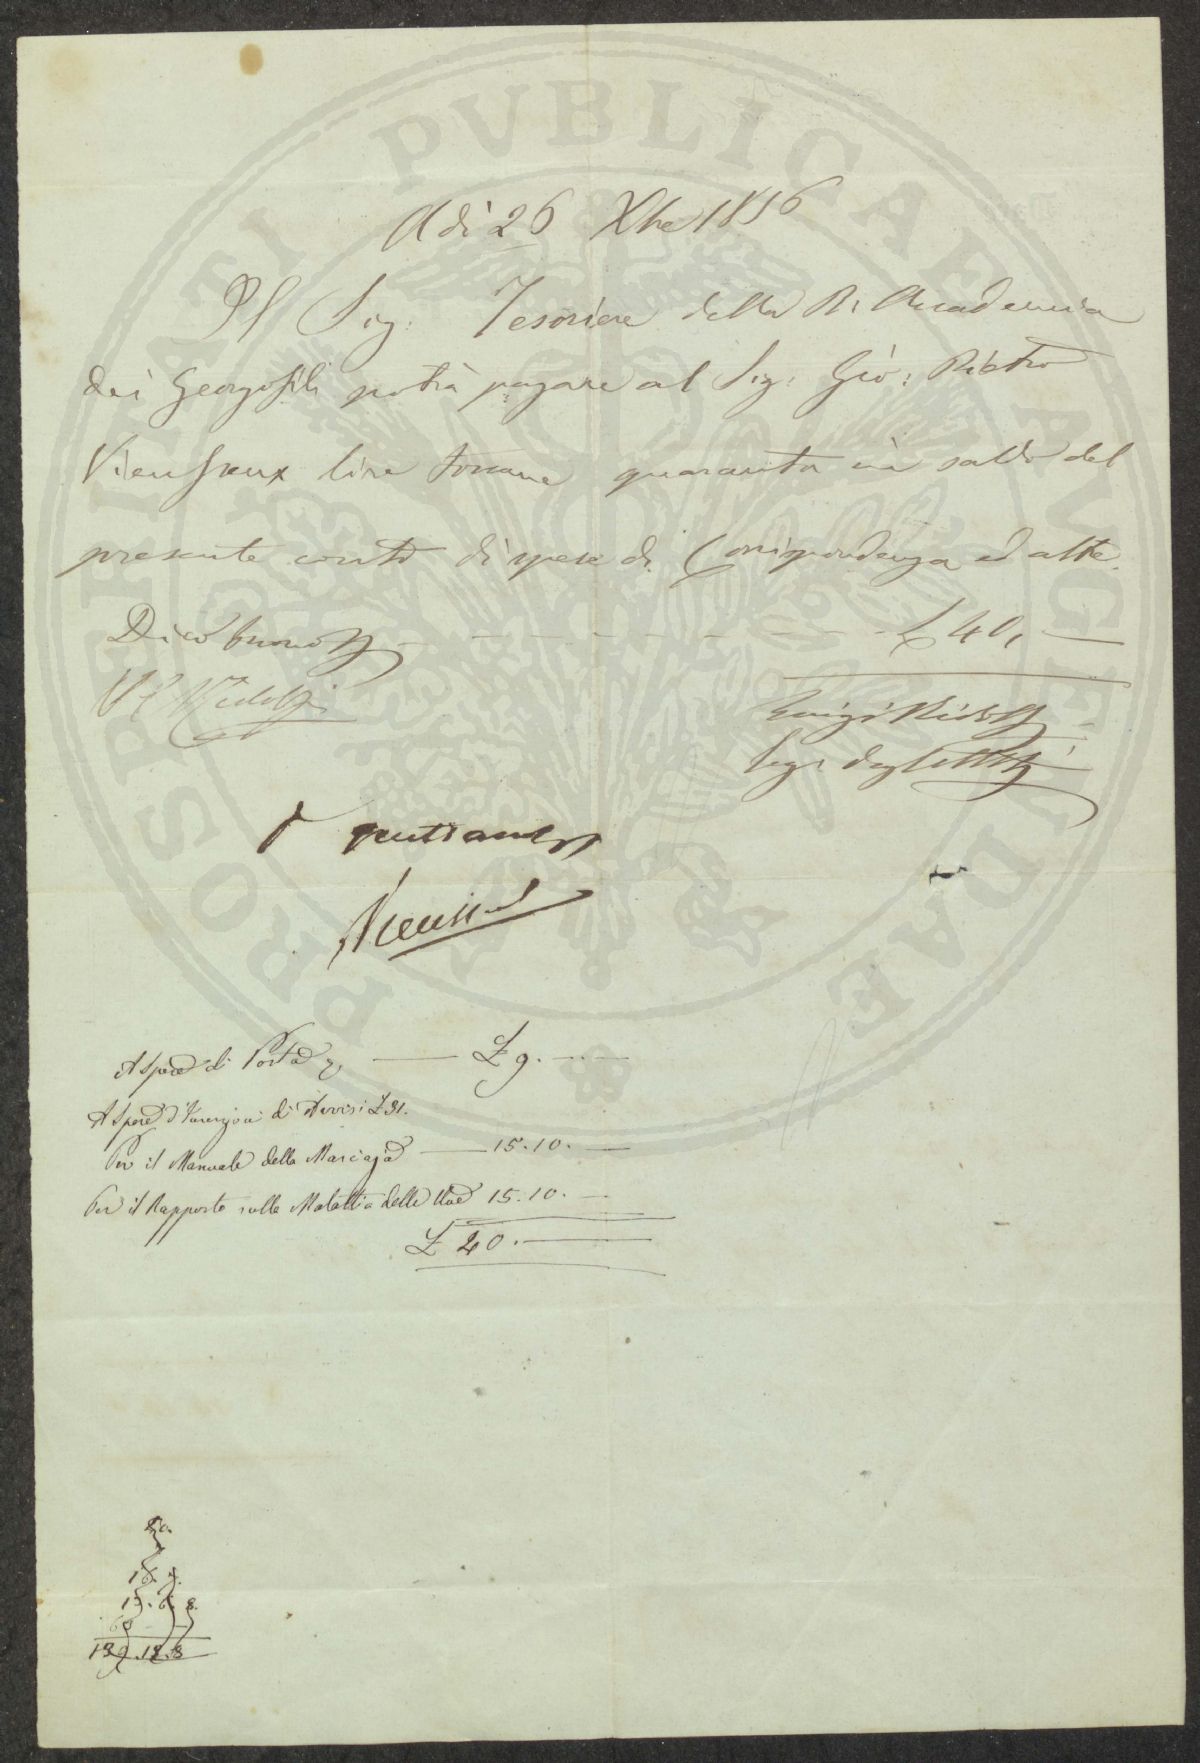 PROSPERITATI PVBLICAE AVGENDAE
Adì 26 Xbre 1856
Il Sig: Tesoriere della R. Accademia
dei Georgofili potrà pagare al Sig: Gio: Pietro
Vieusseux lire toscane quaranta in saldo del
presente conto di spese di Corrispondenza ed altre.
Dico buono £ 40, —
Ridolfi
Luigi Ridolfi
Segr. degli Atti
P quittance
Vieusseux
A Spese di Posta — £ 9. —
A Spese d'Inserzioni di Avvisi £ 31.
Per il Manuale della — 15.10. —
Per il Rapporto sulla Malattia delle Uve 15.10. —
£ 40. —